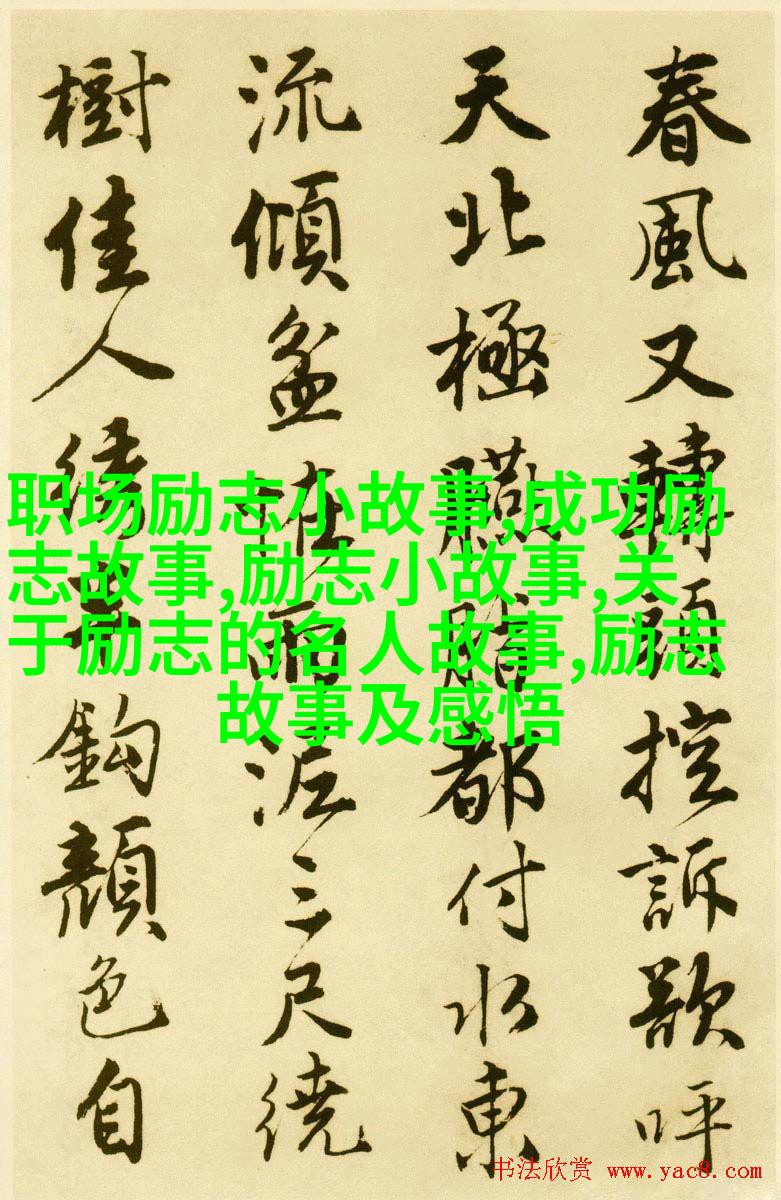 春風又轉頭控訴欲呼
天北極臙脂都付水東
流傾盆怪雨泥三尺繞
樹佳人繡半鈎顏色自
职场励志小故事,成功励
志故事,励志小故事,关
于励志的名人故事,励志
故事及感悟
书法欣赏 www.yac8.com